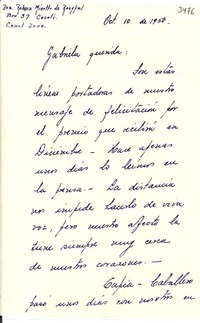 3476
Box 37 Corozal
Canal Zone.
Oct. 10 de 1950.
Gabriela querida:
Son estas
líneas portadoras de nuestro
mensaje de felicitación por
el premio que recibió en
Diciembre. - Hace apenas
unos días lo leímos en
la prensa. - La distancia
nos impide hacerlo de viva
voz, pero nuestro afecto la
tiene siempre muy cerca
de nuestros corazones. -
Tapia - Caballero
pasó unos días con nosotros en